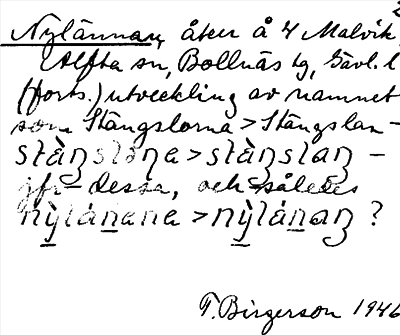 2
Nylännan, åker å 4 Malvik,
Alfta sn, Bollnäs tg, Gävl. l
(forts.) utveckling av namnet
som Stängslorna > Stängslan –
stàŋslöṇa > stàŋslaŋ –
jfr dessa, och således
nỳlánana > nỳlánaŋ ?
T. Birgerson 1946